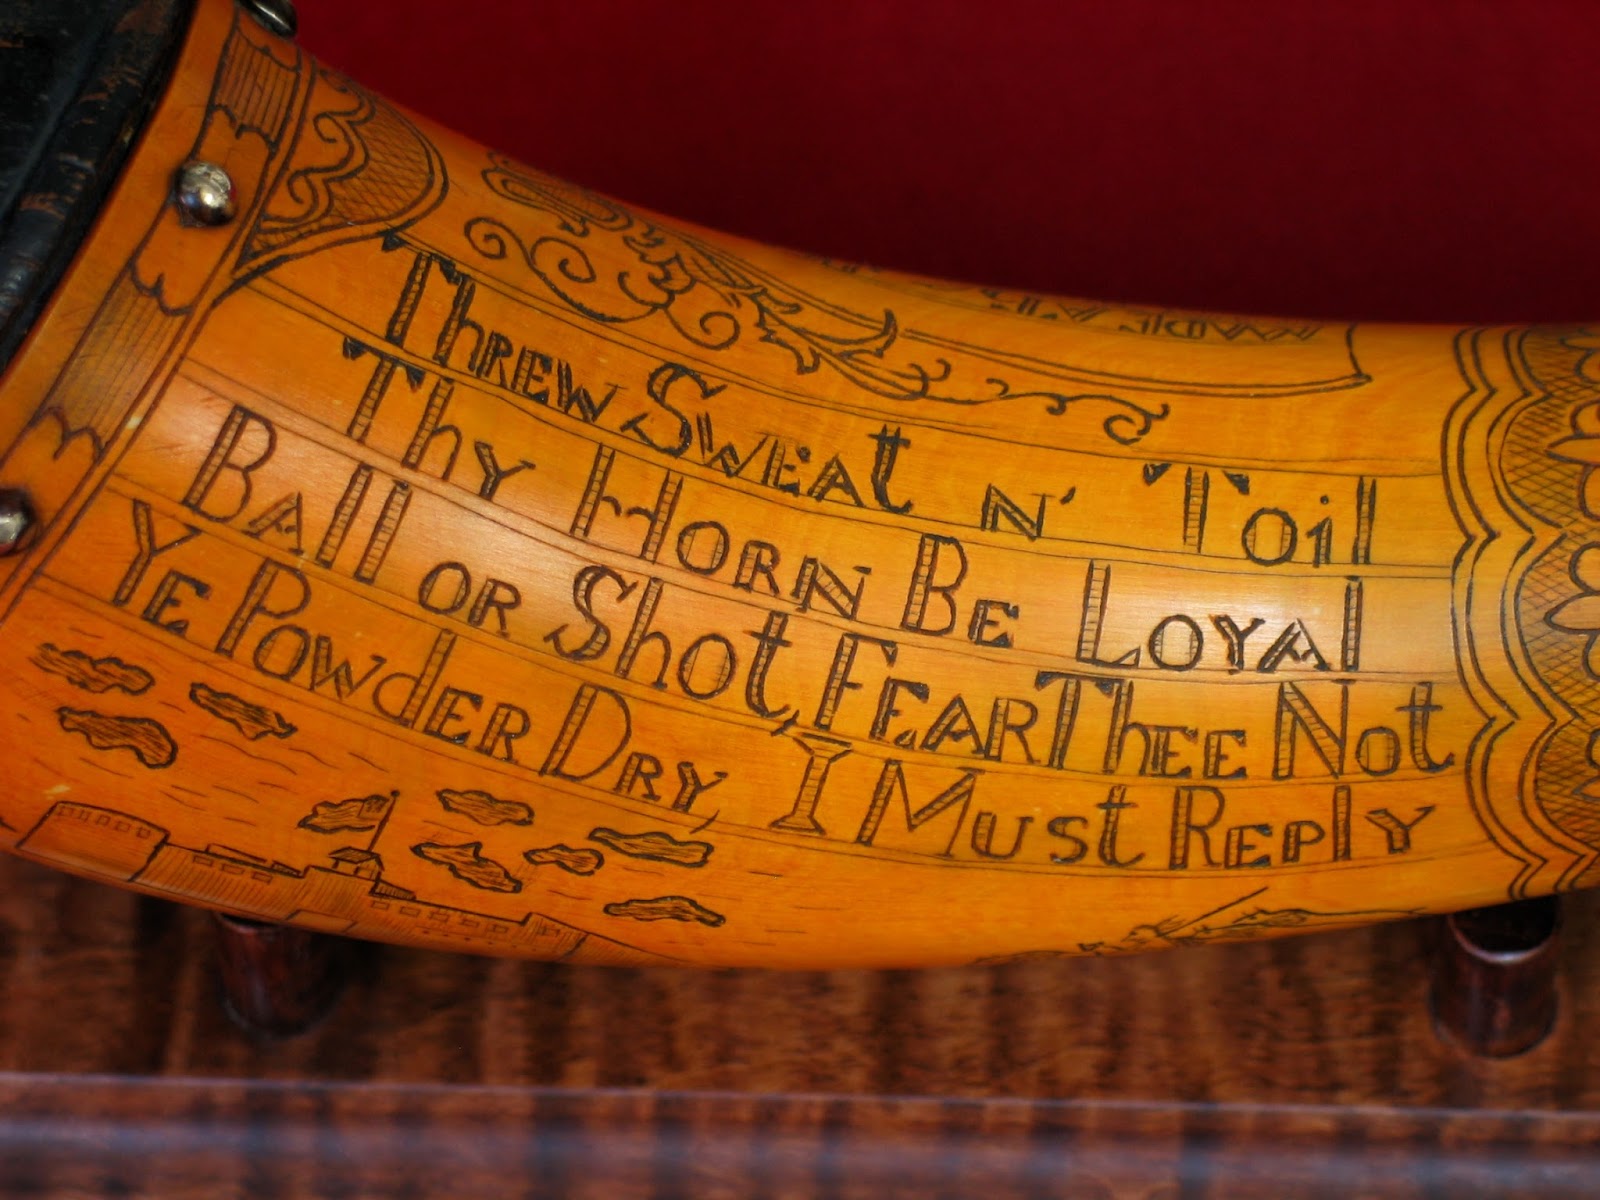 Threw Sweat n' Toil
Thy Horn Be Loyal
Ball or Shot, Fear Thee Not
Ye Powder Dry, I Must Reply